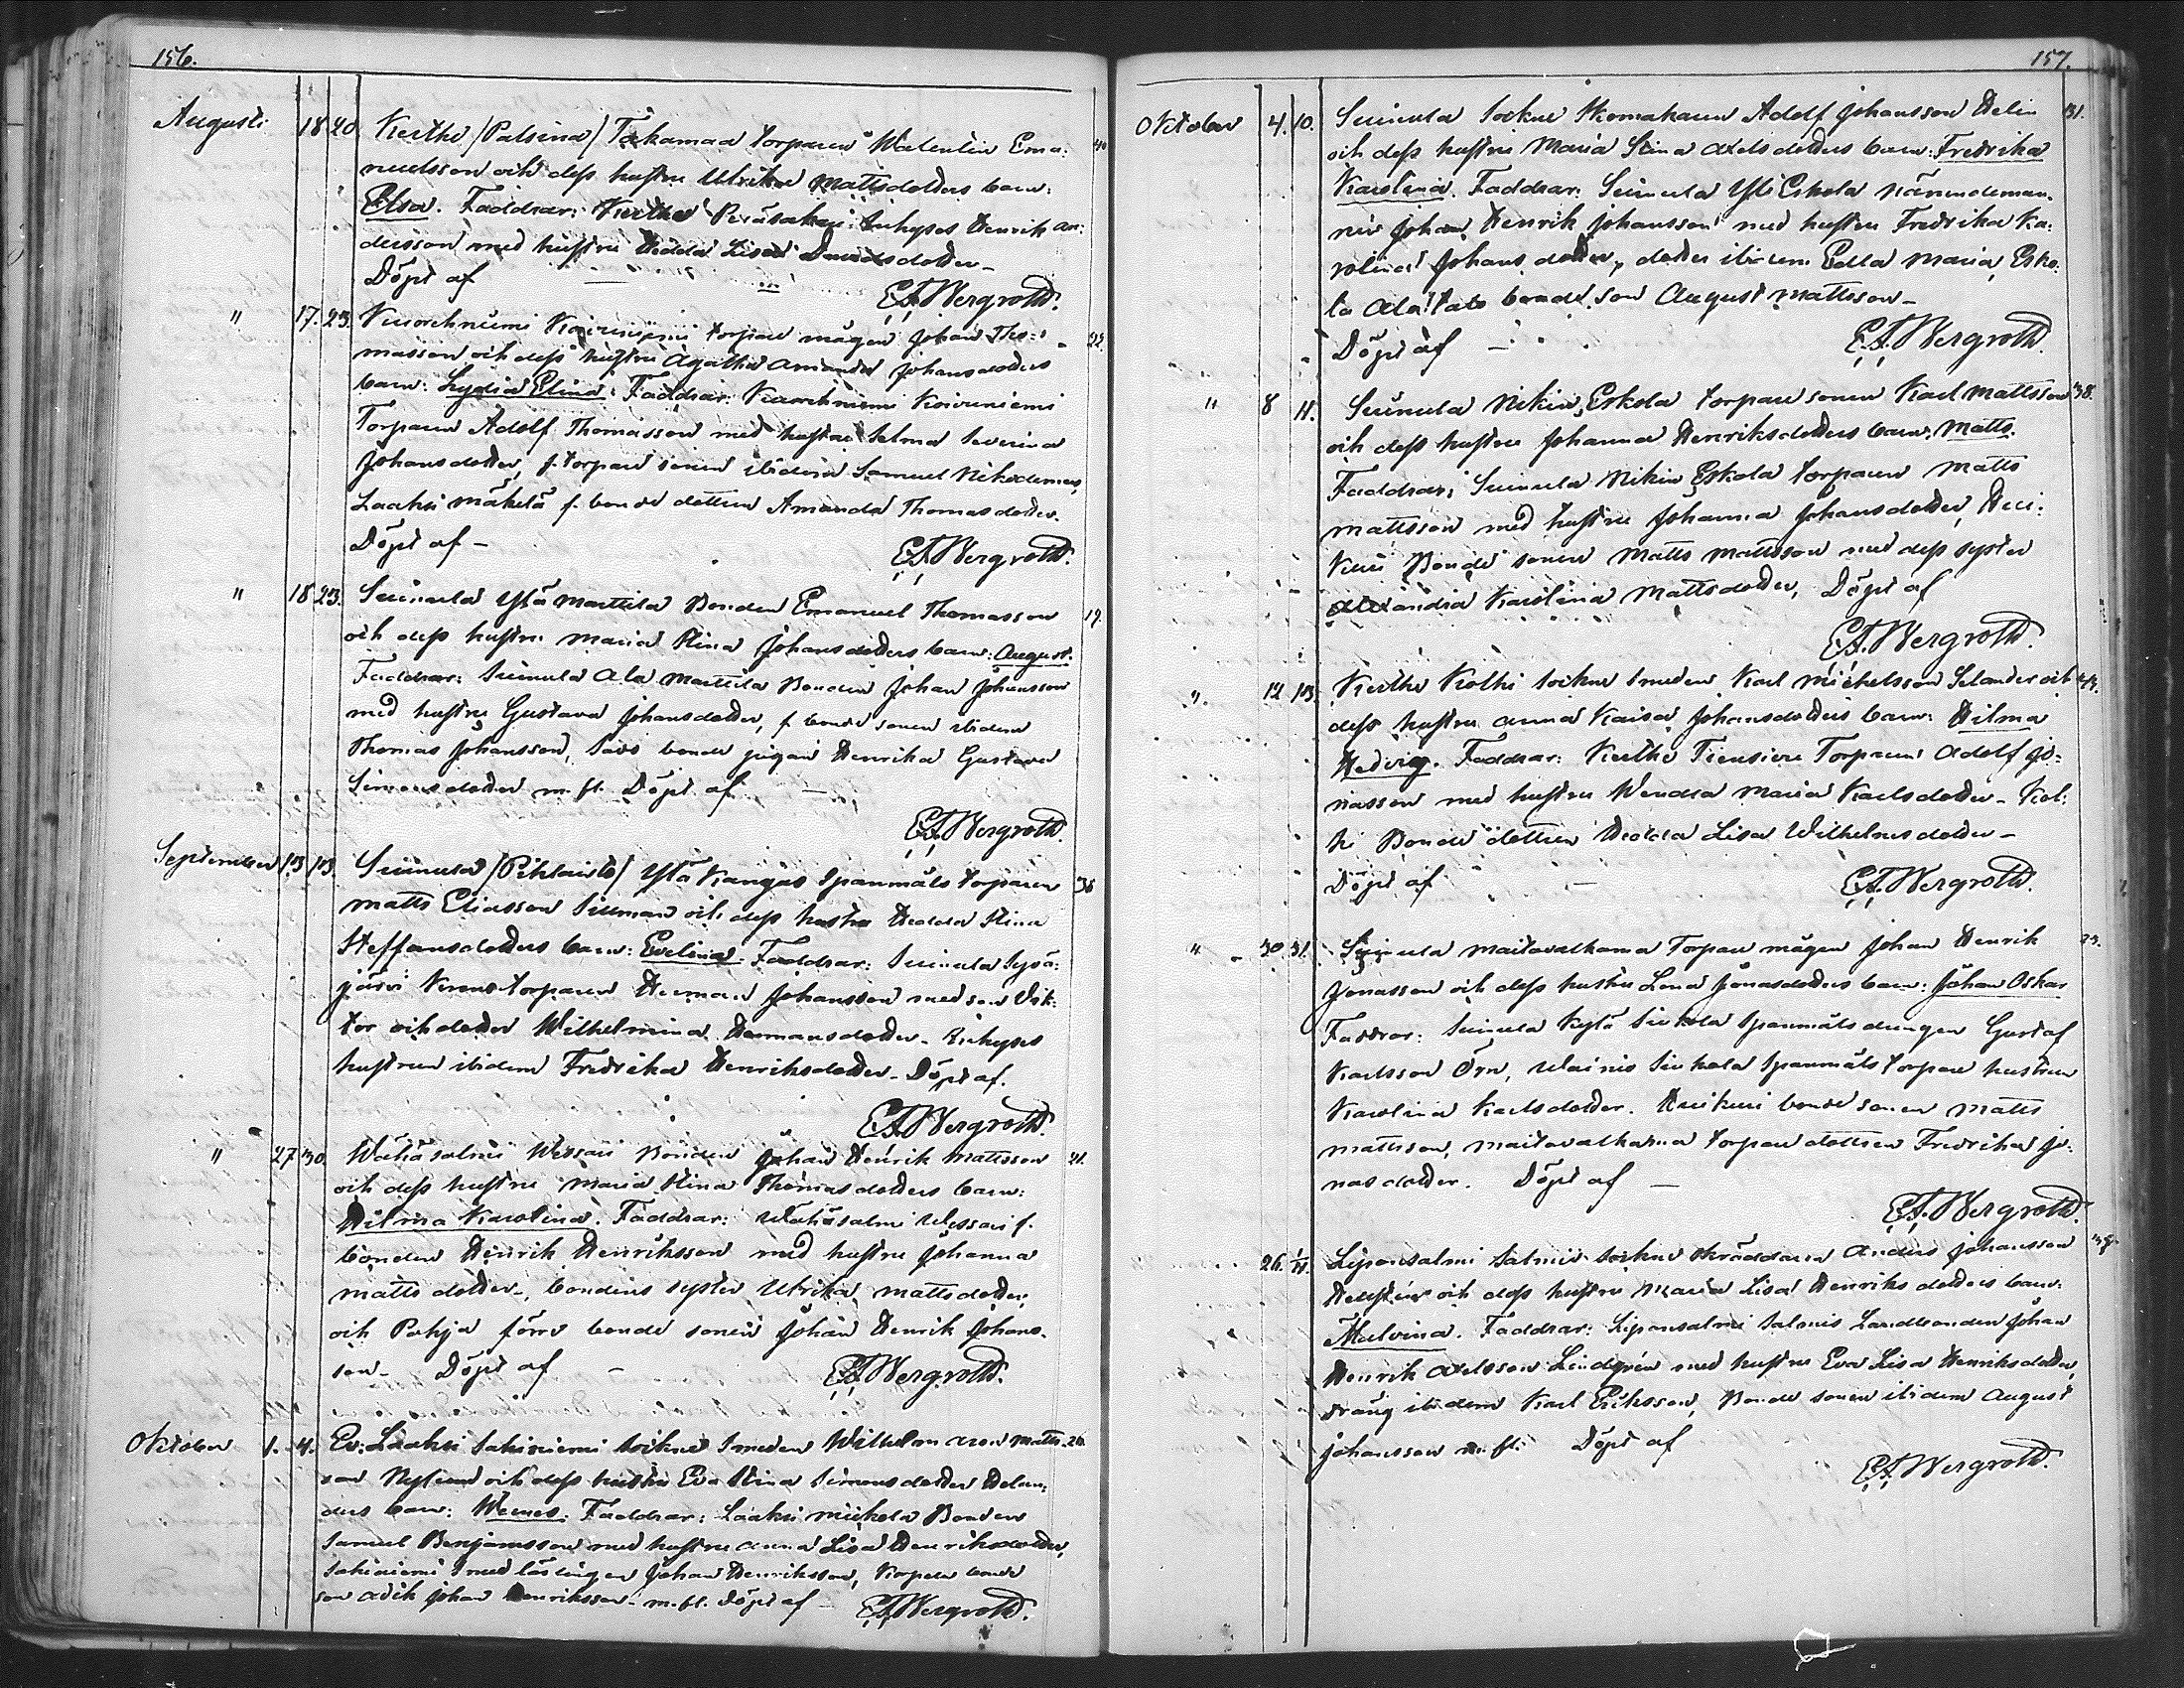 156.
Augusti 18 20. Kierthe /Palsina/ Takamaa torparen Walentin Ema- 40
nuelsson och dess hustru Ulrika Mattsdotters barn:
Elsa. Faddrar: Kierthe Peräsakari Inhyses Henrik An-
dersson med hustru Hedda Lisa Davidsdotter –
Döpt af – E.A. Bergroth.
" 17. 23. Kuorehniemi Koivuniemi torpare mågen Johan Tho- 22.
masson och dess hustru Agatha Amanda Johansdotters
barn: Lydia Elina. Faddrar: Kuorehniemi Koivuniemi
Torparen Adolf Thomasson med hustru Selma Severina
Johansdotter, f. torpare sonen ibidem Samuel Nikodemus,
Laaksi Mäkelä f. bonde dottren Amanda Thomasdotter.
Döpt af – E.A. Bergroth.
" 18 23. Suinula Ylä Marttila Bonden Emanuel Thomasson 19.
och dess hustru Maria Stina Johansdotters barn: August.
Faddrar: Suinula Ala Marttila Bonden Johan Johansson
med hustru Gustava Johansdotter, f. bonde sonen ibidem
Thomas Johansson, bonde pigan Henrika Gustava
Simonsdotter m. fl. Döpt af –
E.A. Bergroth.
September 13 13. Suinula /Pihlaisto/ Ylä Kangas Spanmåls torparen 36
Matts Eliasson Sillman och dess hustru Hedda Stina
Steffansdotters barn: Evelina. Faddrar: Suinula Syvä-
järvi torparen Herman Johansson med son Vik-
tor och dotter Wilhelmina Hermansdotter. Inhyses
hustrun ibidem Fredrika Henriksdotter. Döpt af.
E.A. Bergroth.
" 27 30. Wähäsalmi Wessari Bonden Johan Henrik Mattsson 21.
och dess hustru Maria Stina Thomasdotters barn:
Hilma Karolina. Faddrar: Wähäsalmi Wessari f.
bonden Henrik Henriksson med hustru Johanna
Mattsdotter –, bondens syster Ulrika Mattsdotter,
och Pohja förre bonde sonen Johan Henrik Johans-
son. Döpt af – E.A. Bergroth.
Oktober 1. 4. Ev: Laaksi Sahiniemi sockne smeden Wilhelm Aron Matts- 26.
son Nylund och dess hustru Eva Stina Simonsdotter Helan-
ders barn: Werner. Faddrar: Laaksi Mickola Bonden
Samuel Benjaminsson med hustru Anna Lisa Henriksdotter,
Sahiniemi smed lärlingen Johan Henriksson, Korpela bonde
son Johan Henriksson. m. fl. Döpt af – E.A. Bergroth.
157.
Oktober 4. 10. Suinula Sockne Skomakaren Adolf Johansson Helin 31.
och dess hustru Maria Stina Axelsdotters barn: Fredrika
Karolina. Faddrar: Suinula Yli Eskola
Johan Henrik Johansson med hustru Fredrika Ka-
rolina Johansdotter, dotter ibidem Edla Maria, Esko-
la Alatalo bonde son August Mattsson –
Döpt af – E.A. Bergroth.
" 8 11. Suinula Mikin Eskola torpare sonen Karl Mattsson 38.
och dess hustru Johanna Henriksdotters barn: Matts.
Faddrar: Suinula Mikin Eskola torparen Matts
Mattsson med hustru Johanna Johansdotter,
Bonde sonen Matts Mattsson med dess syster
Alexandra Karolina Mattsdotter, Döpt af
E.A. Bergroth.
" 12 13. Kierthe Kolhi sockne smeden Karl Michelsson Selander och 44.
dess hustru Anna Kaisa Johansdotters barn: Hilma
Hedvig. Faddrar: Kierthe Tiensivu Torparen Adolf Jo-
nasson med hustru Wendla Maria Karlsdotter – Kol-
hi Bonde dottren Hedda Lisa Wilhelmsdotter –
Döpt af – E.A. Bergroth.
" 30. 31. Suinula Maitavalkama Torpare mågen Johan Henrik 23.
Jonasson och dess hustru Lena Jonasdotters barn: Johan Oskar
Faddrar: Suinula Kylä Siukola Spanmåls drängen Gustaf
Karlsson Örn, Siukola Spanmåls torpare hustrun
Karolina Karlsdotter. Heikura bonde sonen Matts
Mattsson, Maitavalkama torpare dottren Fredrika Jo-
nasdotter. Döpt af –
E.A. Bergroth.
26. 1/11. Liponsalmi Salmis sockne skräddaren Anders Johansson
Hellsten och dess hustru Maria Lisa Henriksdotters barn:
Malvina. Faddrar: Liponsalmi Salmis Landbonden Johan
Henrik Axelsson Lindgrén med hustru Eva Lisa Henriksdotter,
dräng ibidem Karl Eriksson, Bonde sonen ibidem August
Johansson m. fl. Döpt af
E.A. Bergroth.